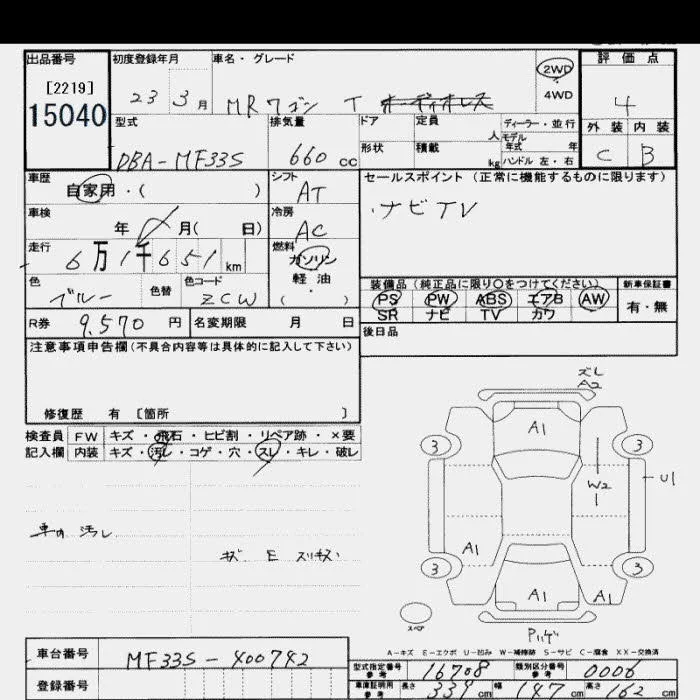 出品番号 初度登録年月 車名・グレード 2WD ・ 4WD 評価点
[2219]
15040
23 3月 MRワゴン T オーディオレス 4
型式 排気量 ドア 定員 人 ディーラー・並行 外装 内装
モデル年式 年
DBA-MF33S 660 cc 形状 積載 kg ハンドル 左・右 C B
車歴 自家用・( ) シフト AT セールスポイント (正常に機能するものに限ります)
・ナビTV
車検 年 月( 日) 冷房 AC
走行 6万1千651km 燃料 ガソリン 軽油 ( ・ )
色 ブルー 色替 色コード ZCW
装備品 (純正品に限り○をつけてください) 新車保証書
PS PW ABS エアB AW 有・無
SR ナビ TV カワ
R券 9,570 円 名変期限 月 日
後日品
注意事項申告欄(不具合内容等は具体的に記入して下さい)
修復歴 有 [箇所 ]
検査員 FW キズ・飛石・ヒビ割・リペア跡・×要
記入欄 内装 キズ・汚レ・コゲ・穴・スレ・キレ・破レ
汚レ
キズ E スリキズ
ズレ
A2
A1
3 3
W2
U1
A1
3 3
A1 A1
スペア
A-キズ E-エクボ U-凹み W-補修跡 S-サビ C-腐食 XX-交換済
車台番号 MF33S-400742
型式指定番号 参考 16708 類別区分番号 参考 0006
登録番号
車庫証明用 参考 長さ 339 cm 幅 147 cm 高さ 162 cm